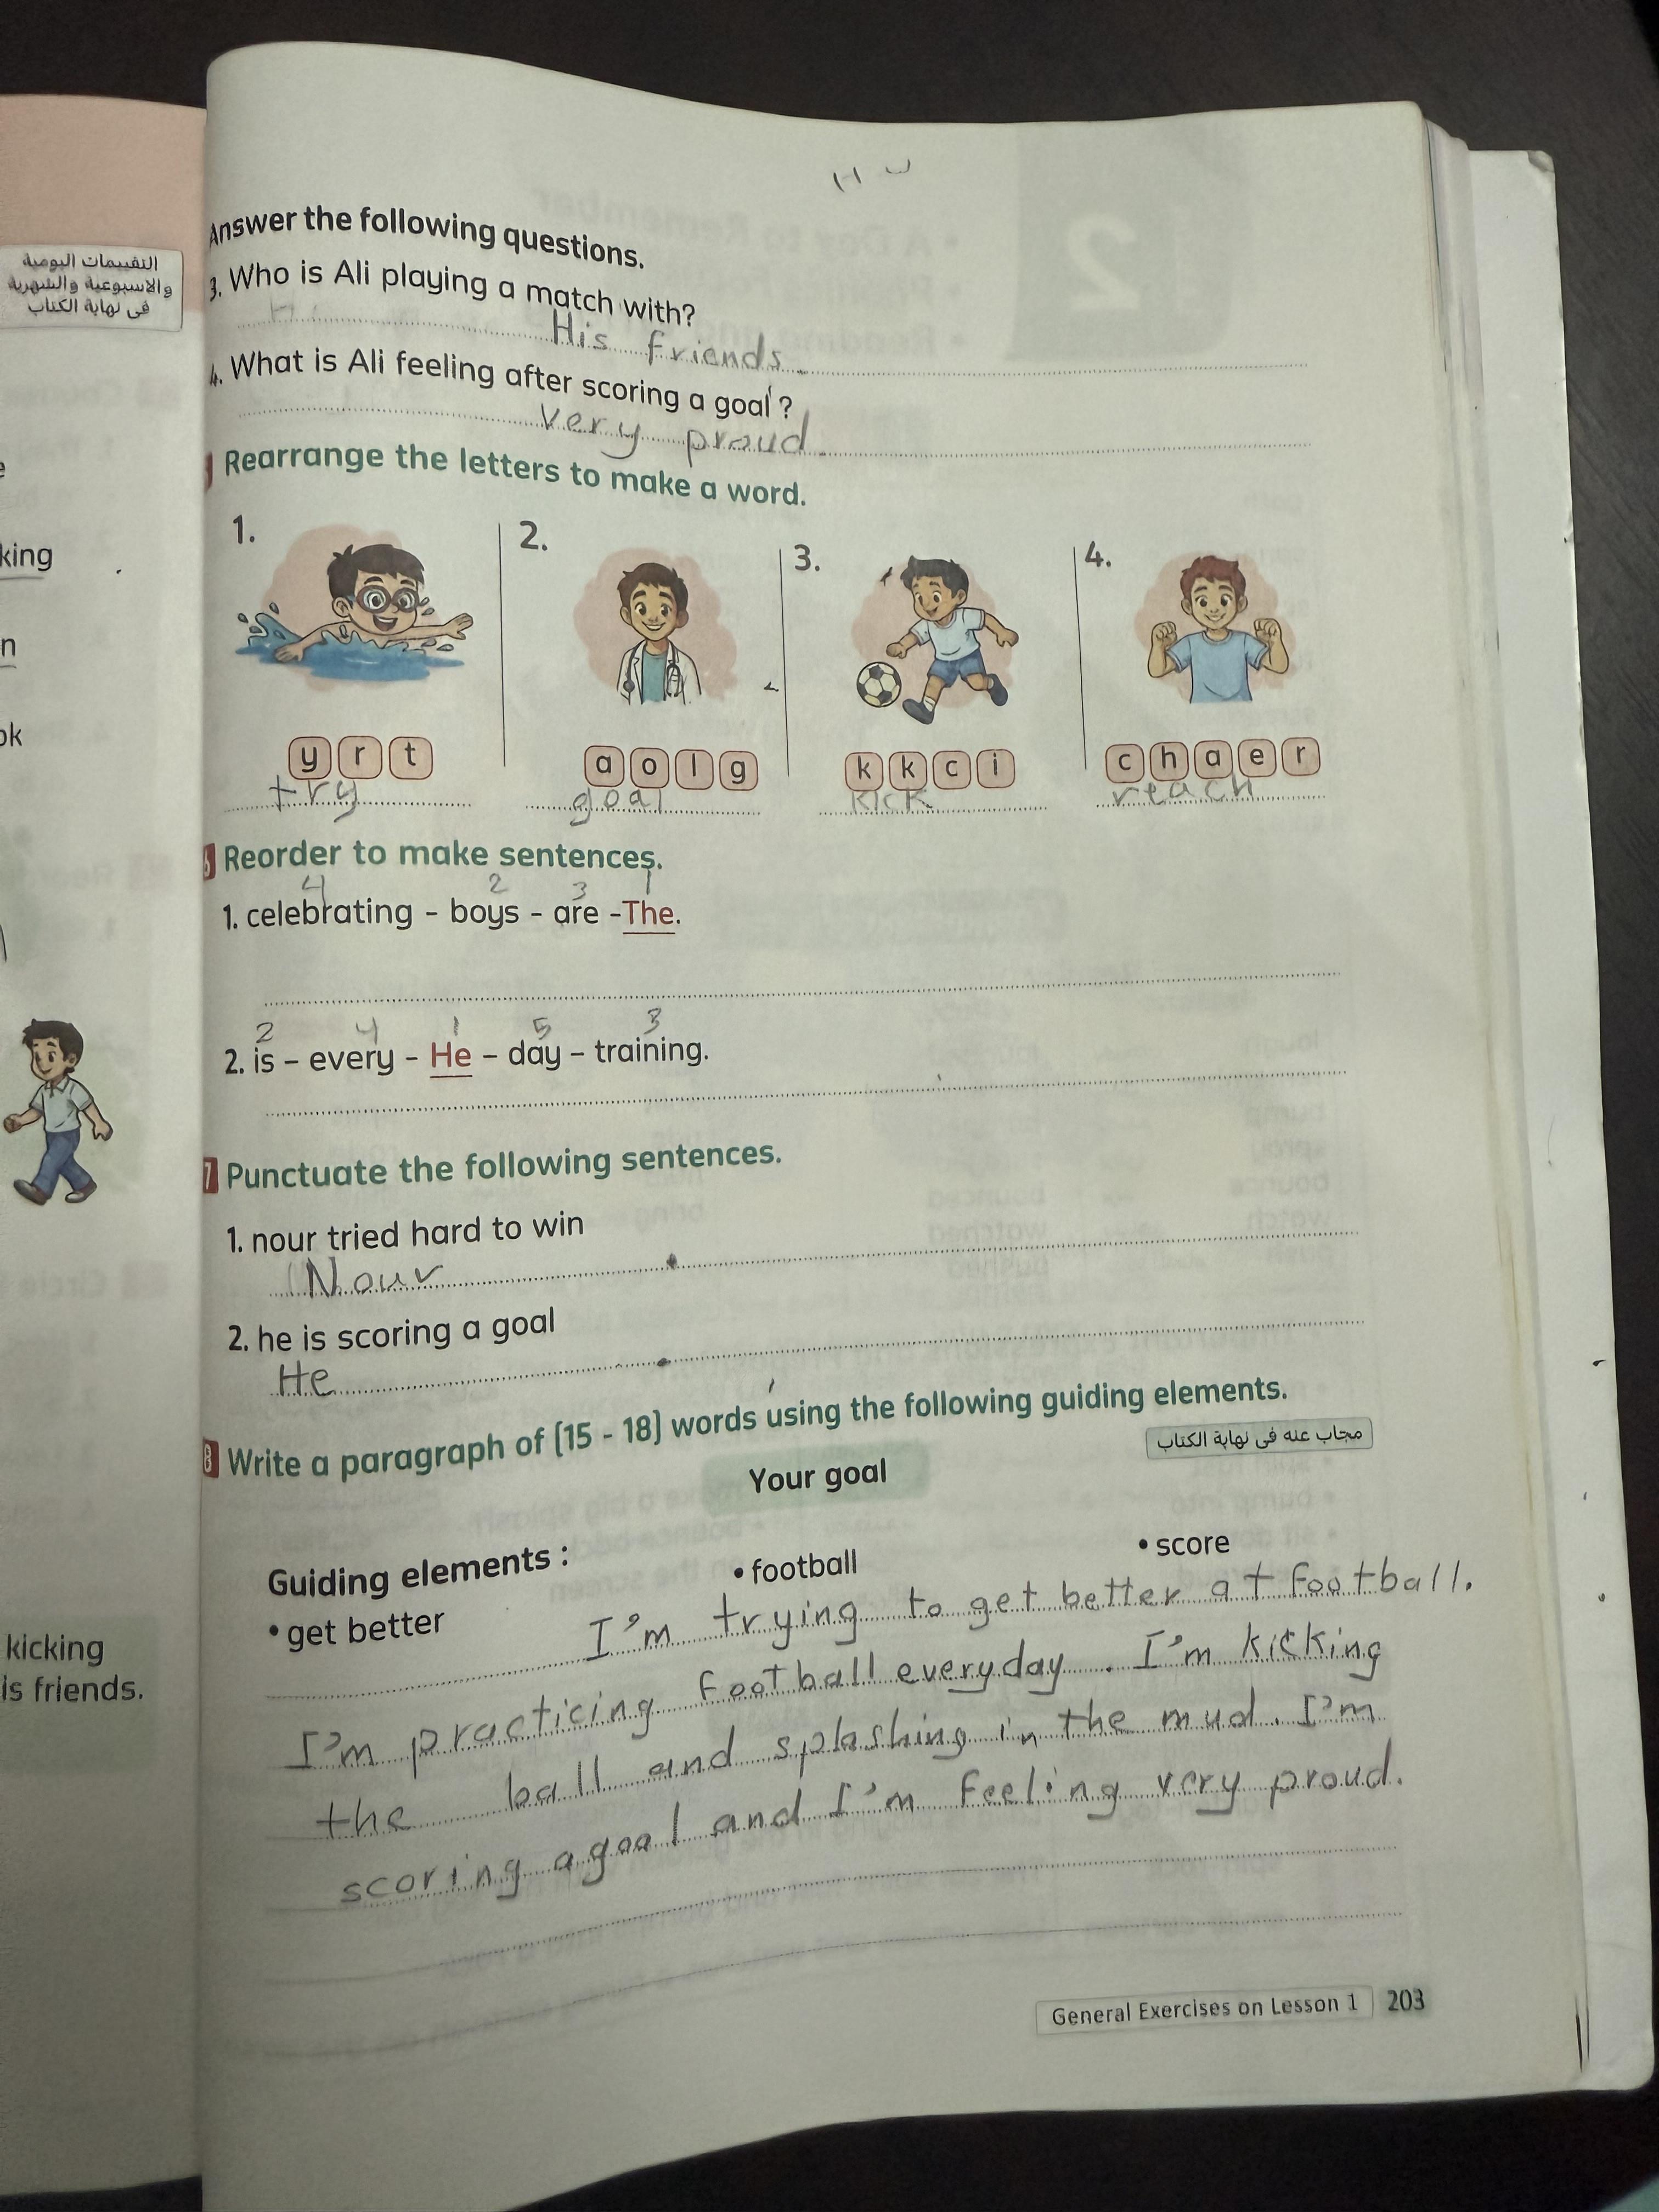 H W
التقييمات اليومية
والاسبوعية والشهرية
فى نهاية الكتاب
king
n
ok
kicking
is friends.
Answer the following questions.
3. Who is Ali playing a match with?
His friends.
4. What is Ali feeling after scoring a goal?
Very proud.
Rearrange the letters to make a word.
1. 2. 3. 4.
y r t a o l g k k c i c h a e r
try goal kick reach
6 Reorder to make sentences.
4 2 3 1
1. celebrating - boys - are - The.
2 4 1 5 3
2. is - every - He - day - training.
7 Punctuate the following sentences.
1. nour tried hard to win
Nour .
2. he is scoring a goal
He .
8 Write a paragraph of (15 - 18) words using the following guiding elements.
مجاب عنه فى نهاية الكتاب
Your goal
Guiding elements :
• get better • football • score
I'm trying to get better at football.
I'm practicing football everyday. I'm kicking
the ball and splashing in the mud. I'm
scoring a goal and I'm feeling very proud.
General Exercises on Lesson 1 203